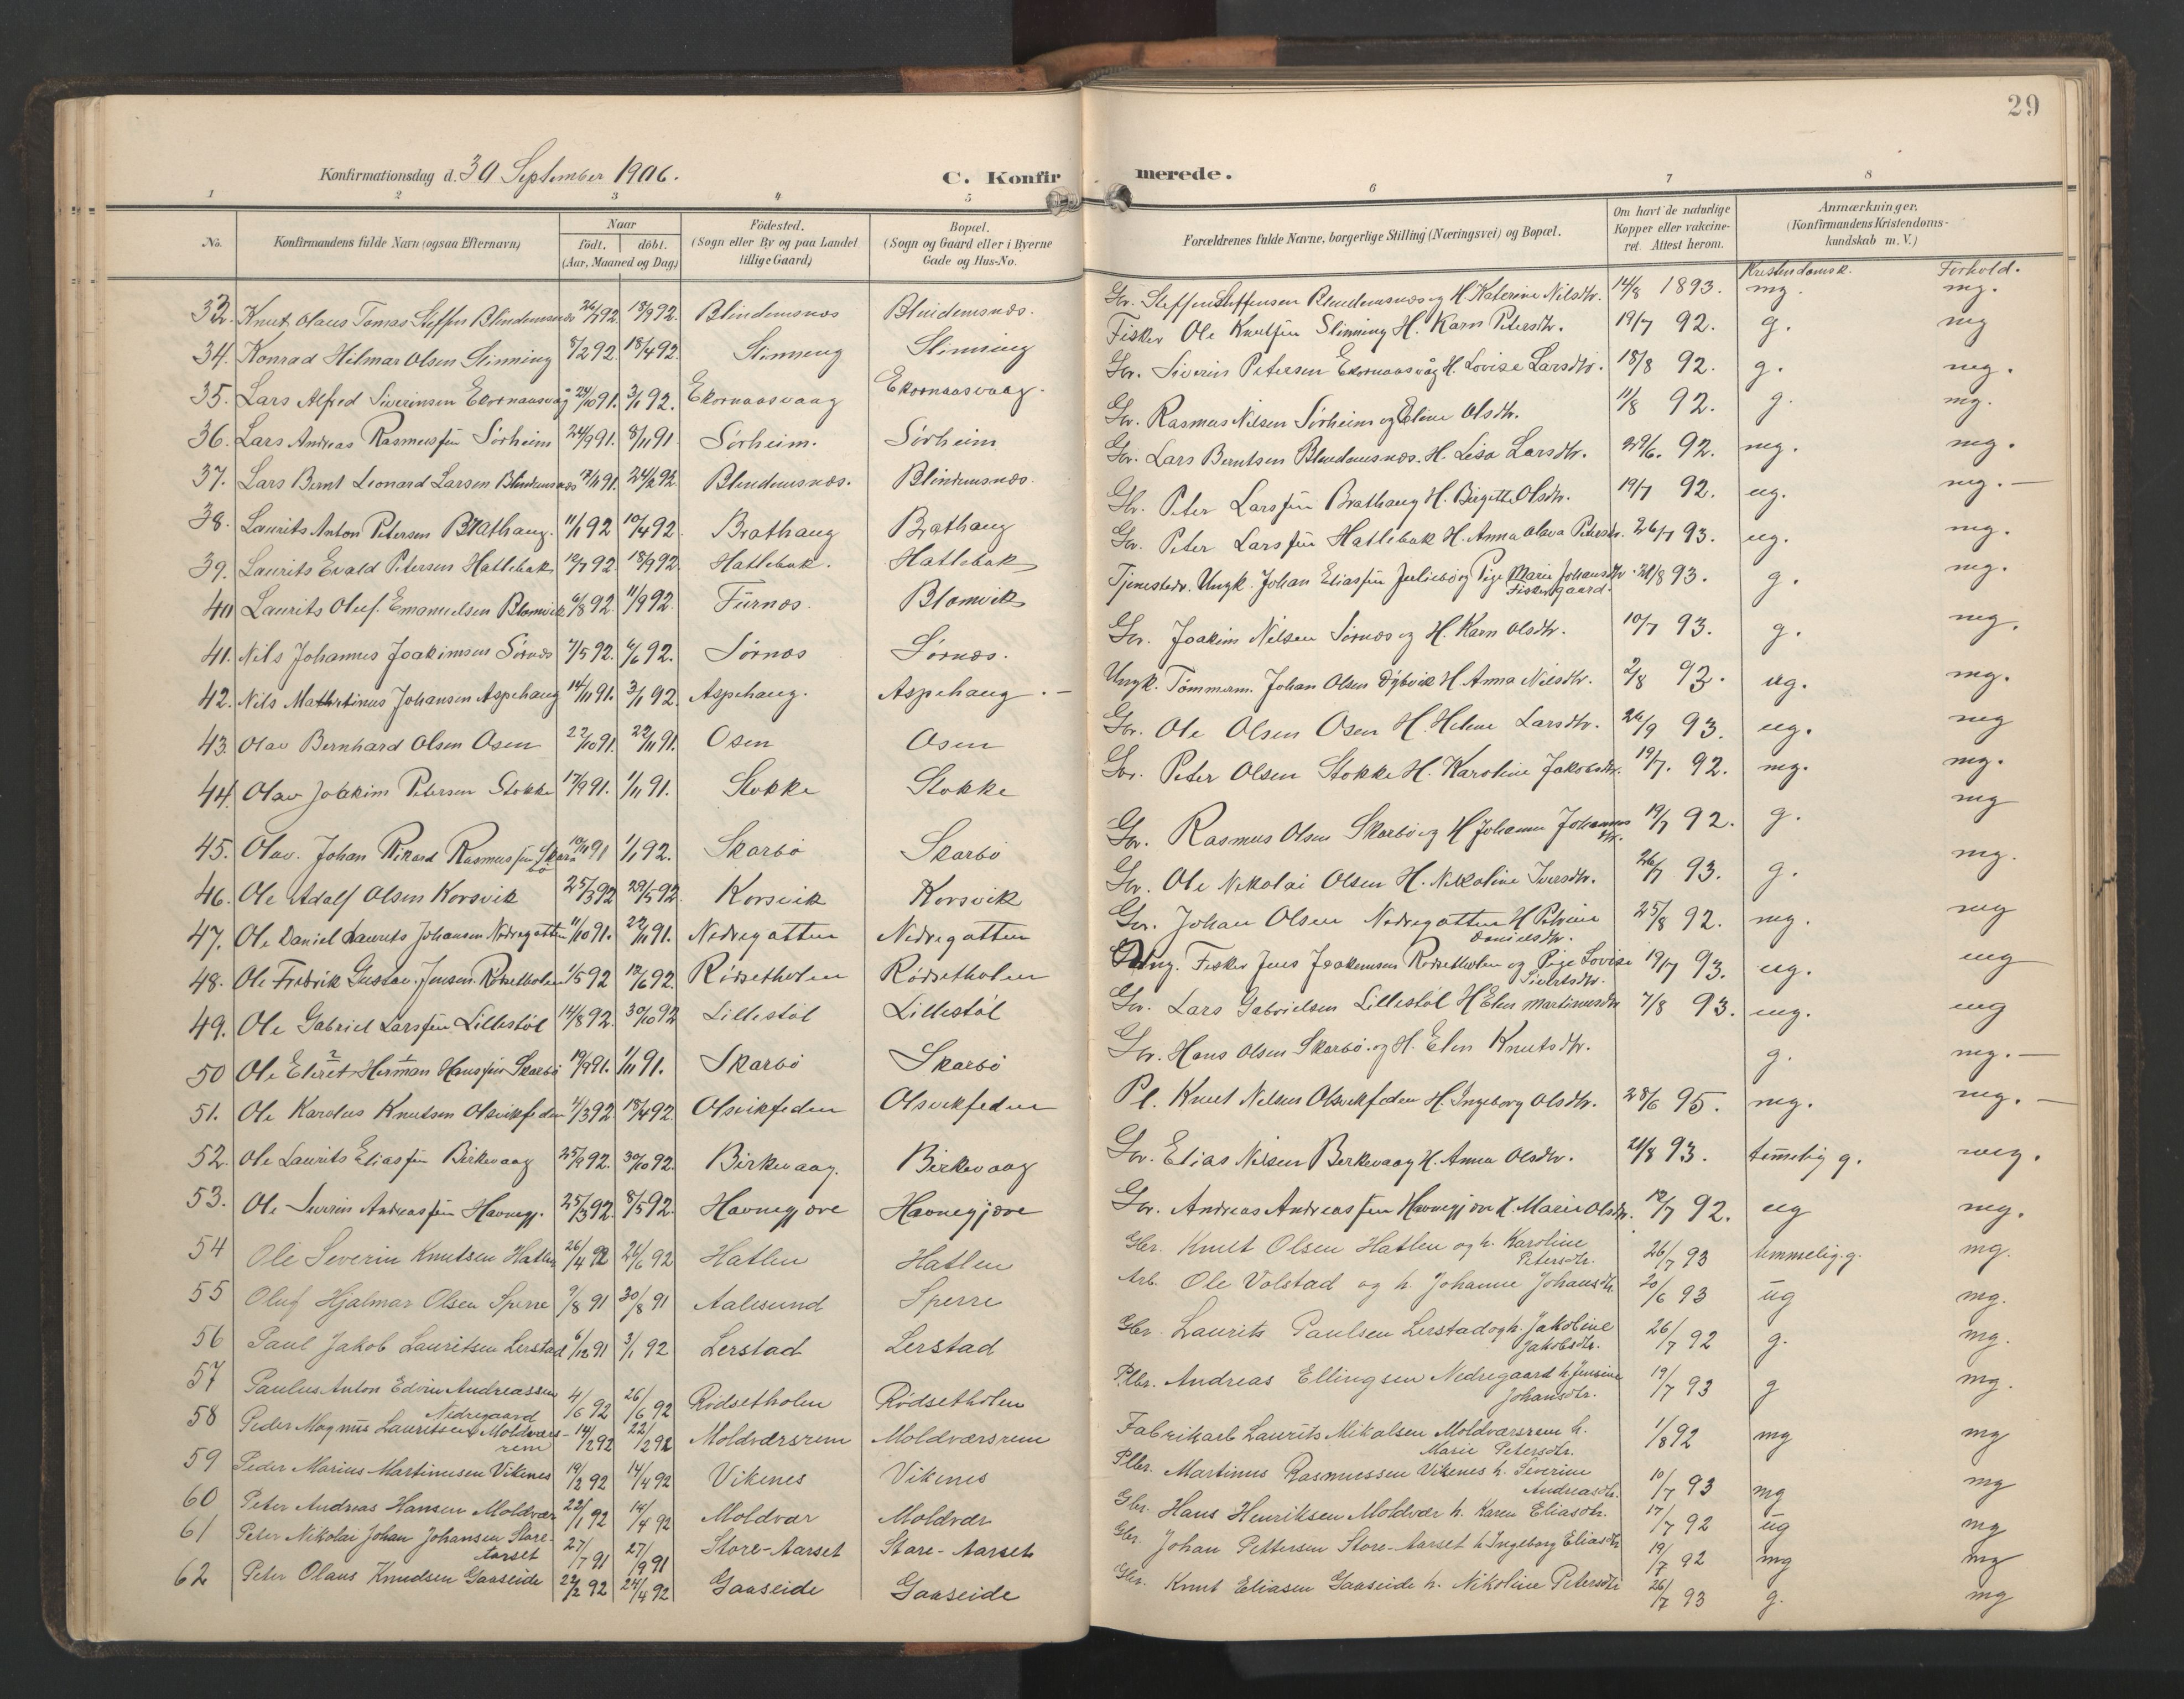 29
Konfirmationsdag d. 30 September 1906. C. Konfirmerede.
1 2 3 4 5 6 7 8
No. Konfirmandens fulde Navn (ogsaa Efternavn) Naar Födt. döbt. (Aar, Maaned og Dag) Födested. (Sogn eller By og paa Landet tillige Gaard) Bopæl. (Sogn og Gaard eller i Byerne Gade og Hus-No. Forældrenes fulde Navne, borgerlige Stilling (Næringsvei) og Bopæl. Om havt de naturlige Kopper eller vakcineret. Attest herom. Anmærkninger. (Konfirmandens Kristendomskundskab m. V.)
Kristendomsk. Forhold.
33. Knut Olaus Tomas Steffen Blindemsnæs 26/7 92 18/9 92. Blindemsnæs Blindemsnæs. Gr. Steffen Steffensen Blindemsnæs og H. Katerine Nilsdtr. 14/8 1893. mg. mg.
34. Konrad Hilmar Olsen Slinning 8/2 92. 18/4 92. Slinning Slinning Fisker Ole Knutsen Slinning H. Karn Petersdtr. 19/7 92. g. mg
35. Lars Alfred Siverinsen Ekornaasvåg 24/10 91. 3/1 92. Ekornaasvaag Ekornaasvaag. Gr. Siverin Petersen Ekornaasvåg H. Lovise Larsdtr. 18/8 92. g. mg.
36. Lars Andreas Rasmussen Sørheim 24/9 91. 8/11 91 Sørheim. Sørheim Gr. Rasmus Nilsen Sørheim og Eline Olsdtr. 11/8 92. g. mg.
37. Lars Bernt Leonard Larsen Blindemsnæs 17/11 91. 24/2 92. Blindemsnæs. Blindemsnæs. Gr. Lars Berntsen Blindemsnæs. H. Lisa Larsdtr. 29/6. 92. mg. mg.
38. Laurits Anton Petersen Brathaug. 11/1 92 10/4 92. Brathaug Brathaug Gr. Peter Larssen Brathaug H. Birgitte Olsdtr. 19/7 92. ug. mg. —
39. Laurits Evald Petersen Hatlebak 12/7 92. 18/9 92. Hatlebak. Hatlebak Gr. Peter Larssen Hatlebak H. Anna Olava Petersdtr. 26/7 93. ug. mg.
40 Laurits Oluf. Emanuelsen Blomvik 6/8 92. 11/9 92. Furnæs. Blomvik Tjenestedr. Ungk. Johan Eliassen Julliebø og Pige Marie Johansdtr. Fiskergaard. 21/8 93. g. mg.
41. Nils Johannes Joakimsen Sørnæs 7/5 92. 6/6 92. Sørnæs Sørnæs. Gr. Joakim Nilsen Sørnæs og H. Karn Olsdtr. 10/7 93. g. mg.
42. Nils Mathitinus Johansen Aspehaug 14/11 91. 3/1 92. Aspehaug. Aspehaug. — Ungk. Tømmerm. Johan Olsen Dybvik H. Anna Nilsdtr. 2/8 93. ug. mg.
43 Olav Bernhard Olsen Osen 22/10 91. 22/11 91. Osen Osen Gr. Ole Olsen Osen H. Helene Larsdtr. 26/9 93. ug. mg
44. Olav Joakim Petersen Stokke 17/9 91. 1/11 91. Stokke Stokke Gr. Peter Olsen Stokke H. Karoline Jakobsdtr. 19/7. 92. mg. mg.
45. Olav. Johan Rikard Rasmussen Skarbø 10/11 91 1/1 92. Skarbø Skarbø Gr. Rasmus Olsen Skarbø og H Johanne Johannesdtr. 19/7 92. g. mg
46. Ole Adolf Olsen Korsvik 25/3 92 29/5 92. Korsvik Korsvik Gr. Ole Nikolai Olsen H. Nikoline Iversdtr. 26/7 93. g. mg.
47. Ole Daniel Laurits Johansen Nedregotten 11/10 91. 22/11 91. Nedregotten Nedregotten Gr. Johan Olsen Nedregotten H Petrine Danielsdtr. 25/8 92. mg. mg
48. Ole Fredrik Gustav. Jensen. Rødsetholen 1/5 92 12/6 92. Rødsetholen Rødsetholen Ung. Fisker Jens Joakimsen Rødsetholen og Pige Lovise Sivertsdtr. 19/7 93. ug. ug
49. Ole Gabriel Larssen Lillestøl 14/8 92. 30/10 92 Lillestøl Lillestøl Gr. Lars Gabrielsen Lillestøl H Elen Martinusdtr 7/8 93. mg. ug
50 Ole Elivet Herman Hanssen Skarbø 19/9 91. 1/11 91. Skarbø Skarbø Gr. Hans Olsen Skarbø. og H. Elen Knutsdtr. g. mg. —
51. Ole Karolus Knutsen Olsvikfeden 4/3 92 18/4 92. Olsvikfeden Olsvikfeden Pl. Knut Nilsen Olsvikfeden H. Ingeborg Olsdtr. 28/6 95. mg. mg. —
52. Ole Laurits Eliassen Birkevaag 25/9 92. 30/10 92. Birkevaag. Birkevaag Gr. Elias Nilsen Birkevaag H. Anna Olsdtr. 21/8 93. temmelig g. mg.
53. Ole Siverin Andreassen Havnegj. 25/3 92. 8/5 92. Havnegjøre Havnegjøre Gr. Andreas Andreassen Havnegjøre H. Marie Olsdtr. 12/7 92. ug mg.
54 Ole Severin Knutsen Hatlen 26/4 92 26/6 92 Hatlen Hatlen Gbr. Knut Olsen Hatlen og h. Karoline Petersdtr. 26/7 93 temmelig. g. mg.
55 Oluf Hjalmar Olsen Sperre 9/8 91 30/8 91 Aalesund Sperre Arb. Ole Valstad og h. Johanne Johansdtr. 20/6 93 ug mg.
56 Paul Jakob Lauritsen Lerstad 6/12 91 3/1 92 Lerstad Lerstad Gbr. Laurits Paulsen Lerstad og h. Jakobine Jakobsdtr. 26/7 92 g. mg.
57 Paulus Anton Edvin Andreassen Nedregaard 4/6 92 26/6 92 Rødsetholen Rødsetholen Plbr. Andreas Ellingsen Nedregaard h. Jensine Johansdtr. 19/7 93 g mg.
58 Peder Magnus Lauritsen Moldværsrem 14/2 92 22/2 92 Moldværsrem Moldværsrem Fabrikarb Laurits Mikalsen Moldværsrem h. Marie Petersdtr. 1/8 92 mg mg
59 Peder Marius Martinusen Vikenes 19/2 92 14/4 92 Vikenes Vikenes Plbr. Martinus Rasmussen Vikenes h. Severine Andreasdtr. 10/7 93 mg mg
60 Peter Andreas Hansen Moldvær 22/1 92 14/4 92 Moldvær Moldvær Gbr. Hans Henriksen Moldvær h. Karen Eliasdtr. 17/7 92 ug mg
61 Peter Nikolai Johan Johansen Store-Aarset 27/7 91 27/9 91 Store-Aarset Store-Aarset Gbr. Johan Pettersen Store-Aarset h Ingeborg Eliasdtr 19/7 92 mg mg
62 Peter Olaus Knudsen Gaaseide 22/2 92 24/4 92 Gaaseide Gaaseide Gbr. Knut Eliasen Gaaseide h. Nikoline Petersdtr 26/7 93 g. mg